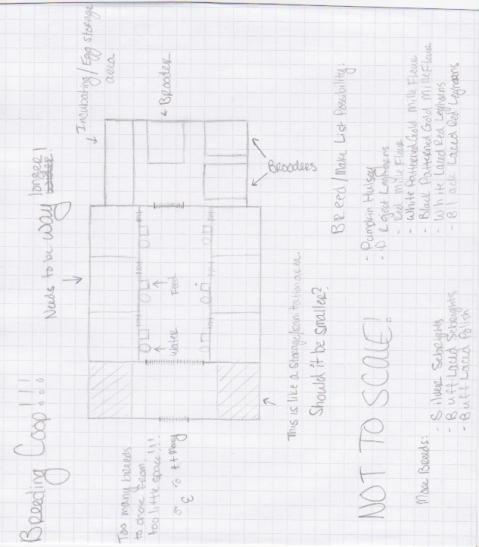 Breeding Coop!!!
Needs to be way longer!
Incubating/Egg storage
area
Brooder
Brooders
Too many breeds
to chose from
too little space!!!
Water
Food
This is like a storage room
Should it be smaller?
NOT TO SCALE!
Breed/Make List Possibility:
- Pumpkin Hulsey
- Leghorns
- Red Mille Fleur
- White Patterned Gold Mille Fleur
- Black Patterned Gold Mille Fleur
- White Laced Red Leghorns
- Black Laced Red Leghorns
More Breeds:
- Silver Sebrights
- Buff Laced Sebrights
- Buff Laced Polish